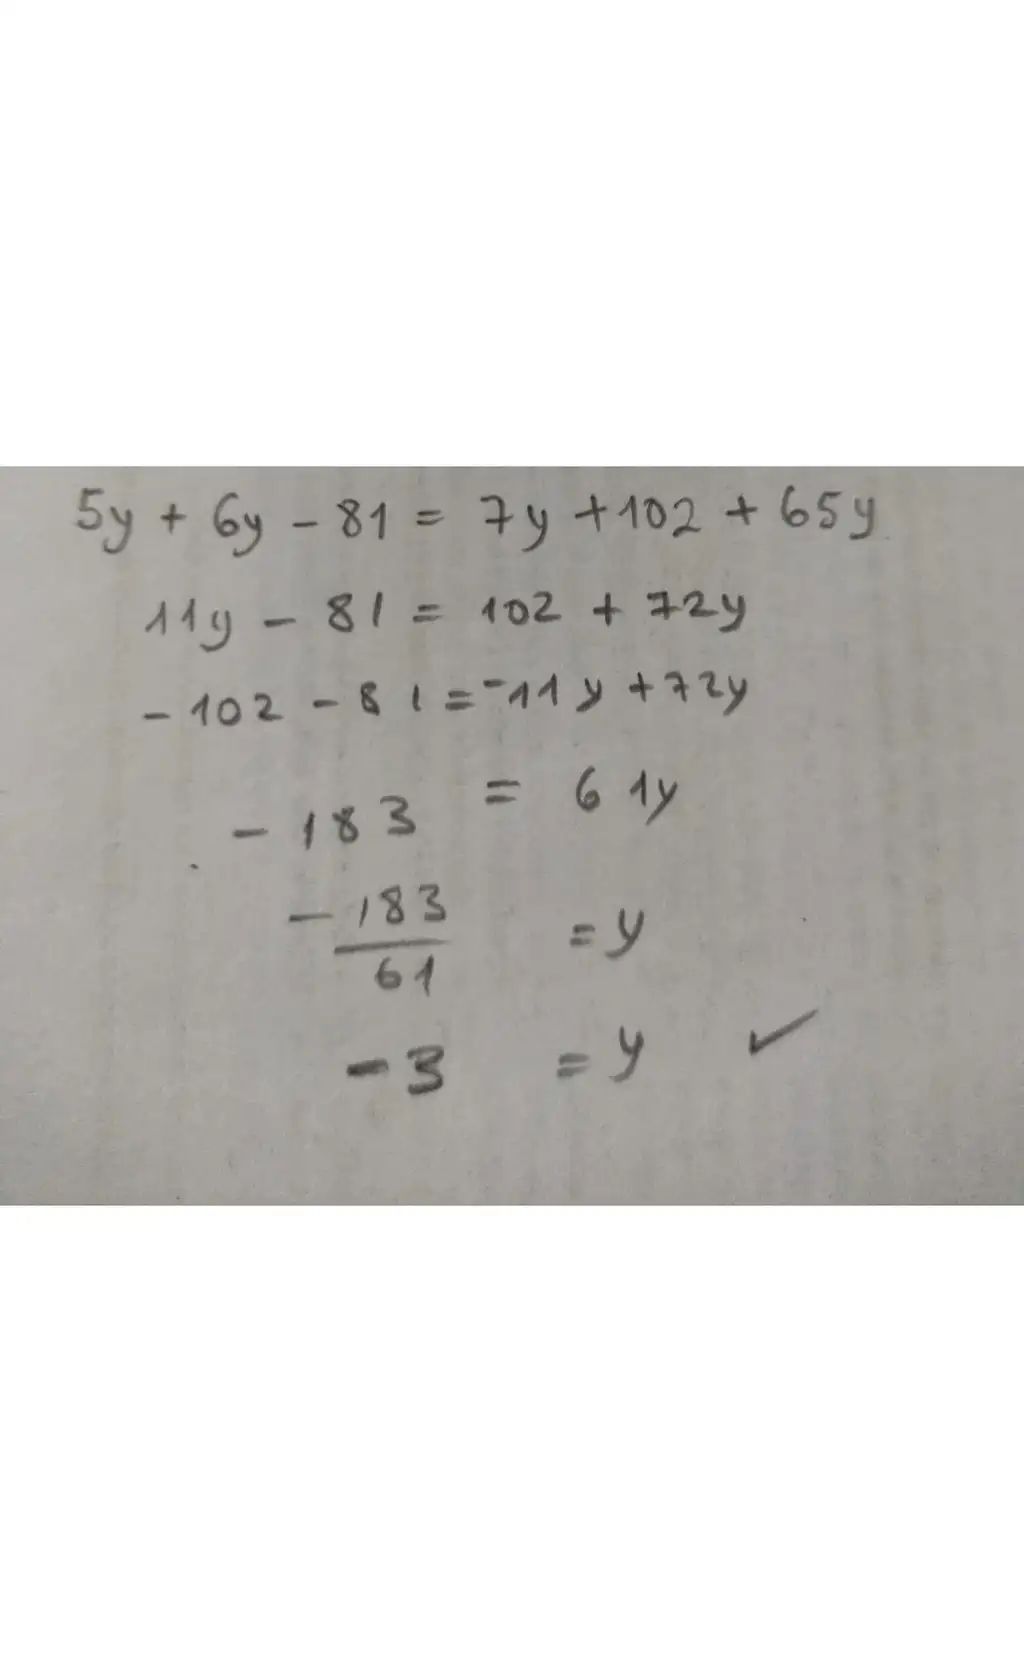 5y + 6y - 81 = 7y + 102 + 65y
11y - 81 = 102 + 72y
-102 - 81 = -11y + 72y
-183 = 61y
-183/61 = y
-3 = y ✓